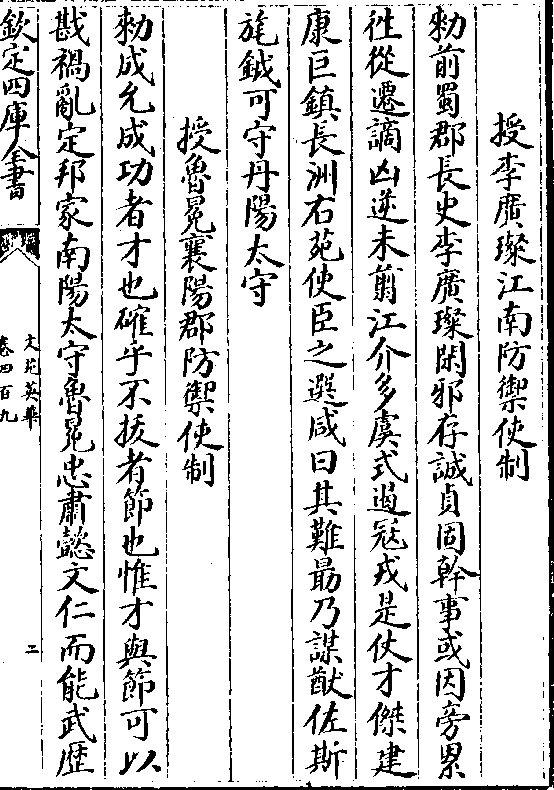 授李廣璨江南防禦使制
勅前蜀郡長史李廣璨閑邪存誠貞固幹事或因旁累
徃從遷謫凶逆未翦江介多虞式遏冦戎是仗才傑建
康巨鎮長洲右苑使臣之選咸曰其難最乃謀猷佐斯
旄鉞可守丹陽太守
授魯炅襄陽郡防禦使制
勅成允成功者才也確乎不拔者節也惟才與節可以
戡禍亂定邦家南陽太守魯炅忠肅懿文仁而能武歴
欽定四庫全書
文苑英華
卷四百九
二